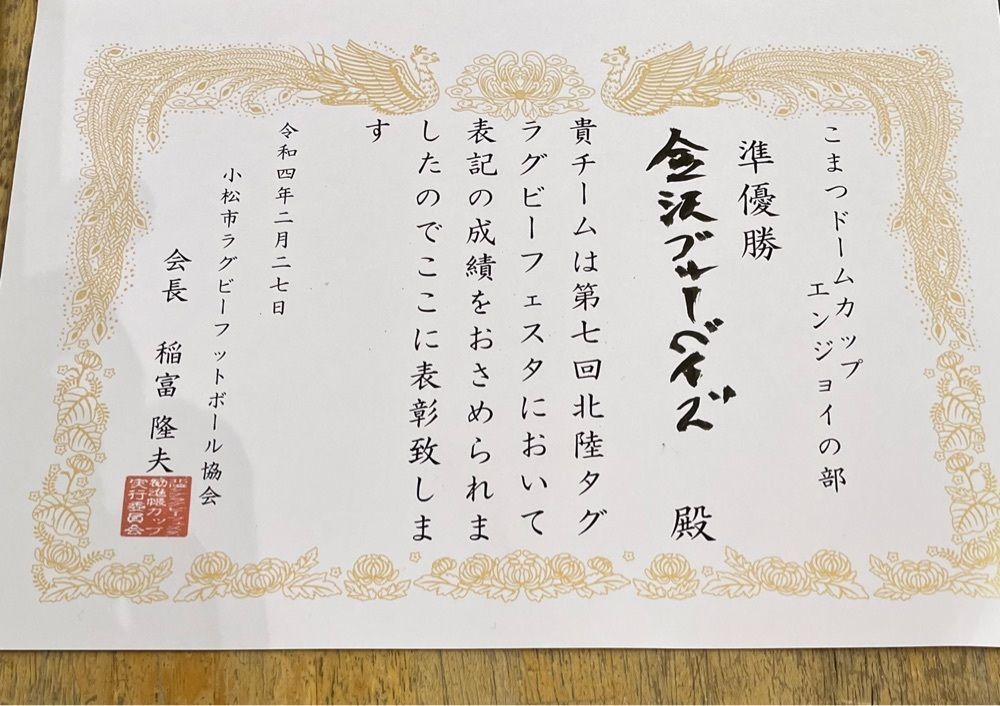 こまつドームカップ
エンジョイの部
準優勝
金沢ブルーベイズ 殿
貴チームは第七回北陸タグ
ラグビーフェスタにおいて
表記の成績をおさめられま
したのでここに表彰致しま
す
令和四年二月二七日
小松市ラグビーフットボール協会
会長 稲富 隆夫
勧進帳カップ
実行委員会